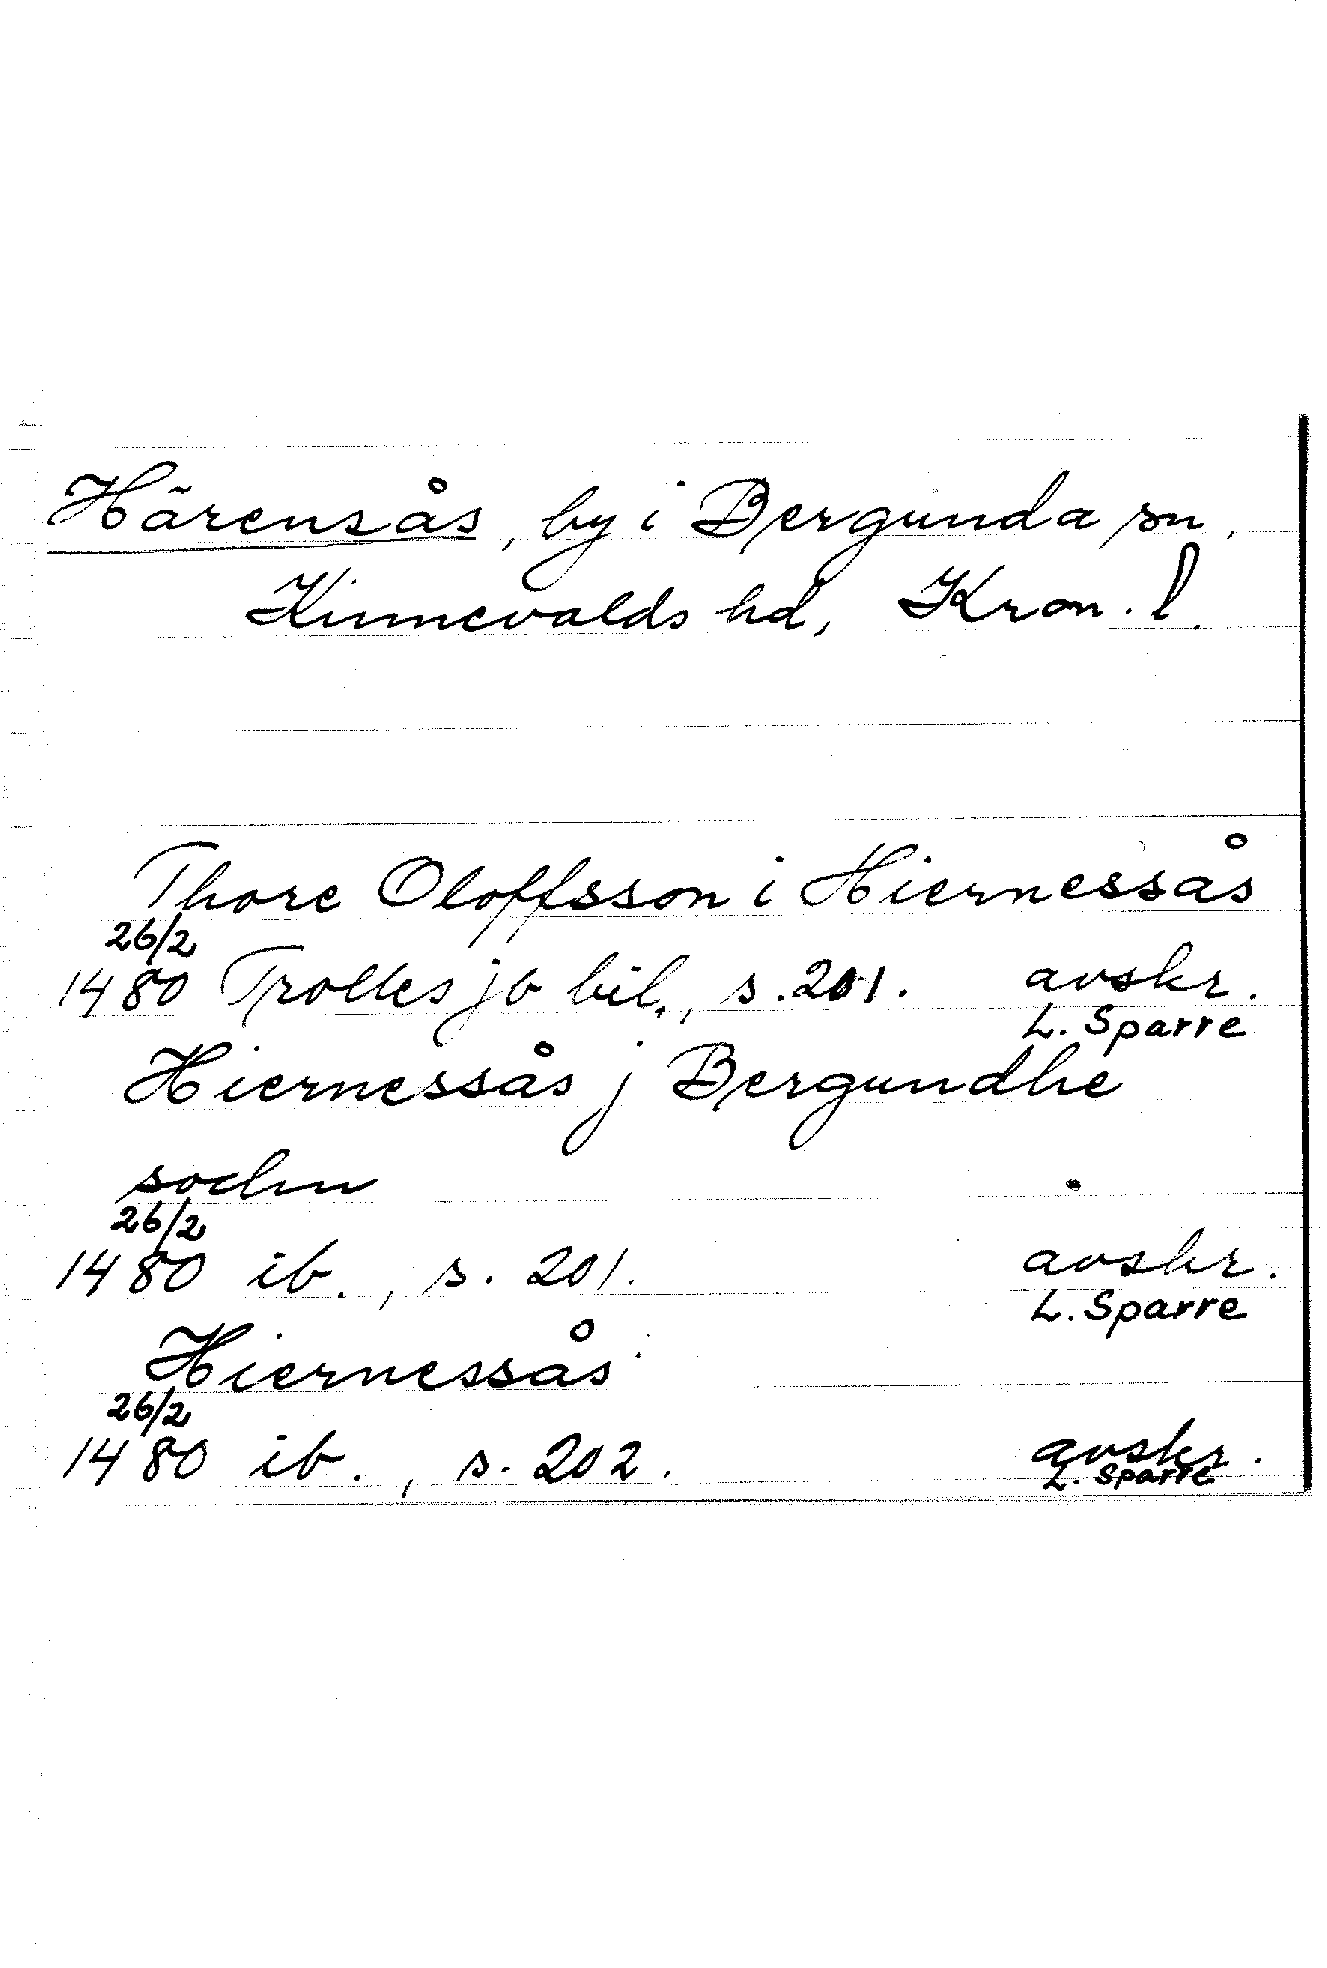 Härensås, by i Bergunda sn,
Kinnevalds hd, Kron. l.
Thore Oloffsson i Hiernessås
26/2
1480 Trolles jb bil., s. 201. avskr.
L. Sparre
Hiernessås j Bergundhe
sochn
26/2
1480 ib., s. 201. avskr.
L. Sparre
Hiernessås
26/2
1480 ib., s. 202. avskr.
L. Sparre